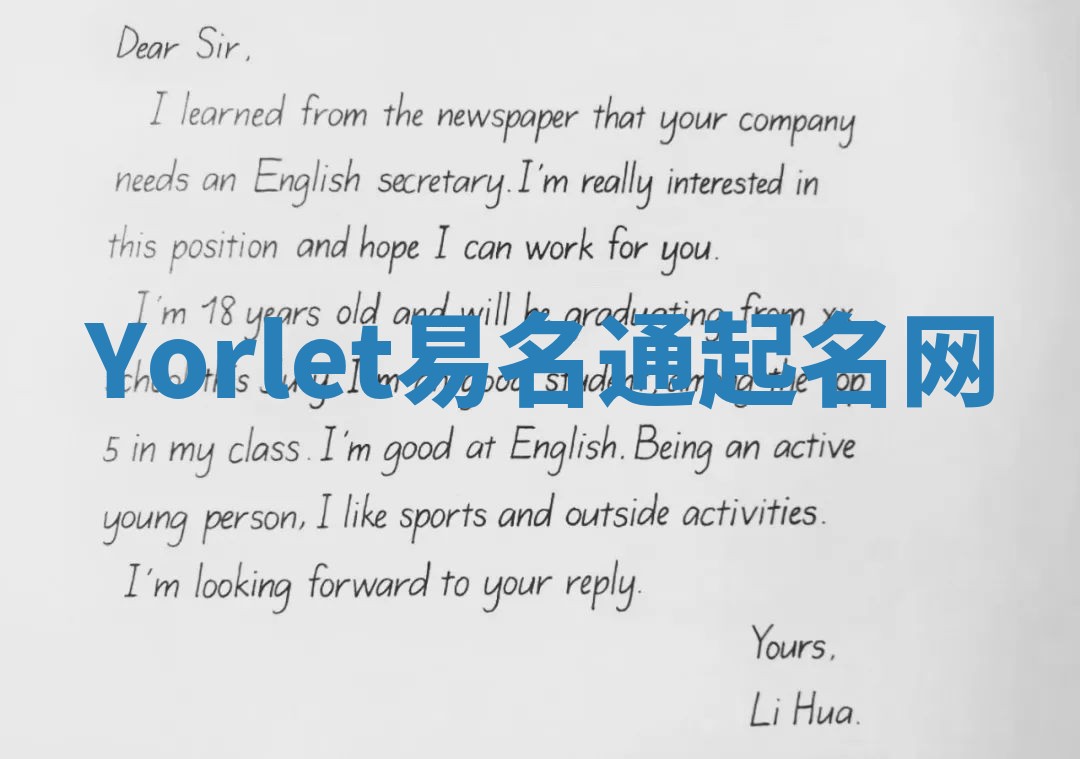 Dear Sir,
I learned from the newspaper that your company
needs an English secretary. I'm really interested in
this position and hope I can work for you.
I'm 18 years old and will be graduating from xx
Yorlet易名通起名网
school this July. I'm a good student, among the top
5 in my class. I'm good at English. Being an active
young person, I like sports and outside activities.
I'm looking forward to your reply.
Yours,
Li Hua.